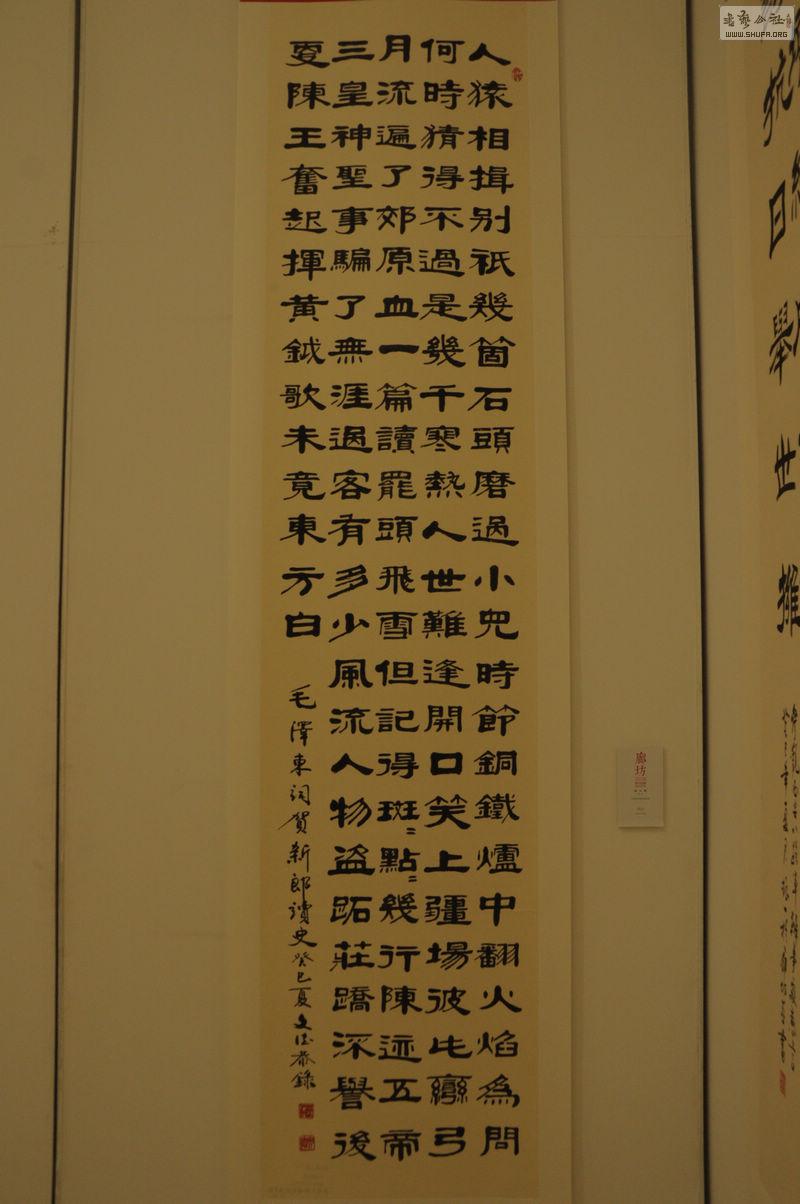 人猿相揖别祇幾箇石頭磨過小兒時節銅鐵爐中翻火焰為問
何時猜得不過是幾千寒熱人世難逢開口笑上疆場彼此彎弓
月流遍了郊原血一篇讀罷頭飛雪但記得斑〻點〻幾行陳迹五帝
三皇神聖事騙了無涯過客有多少風流人物盜跖莊蹻深譽後
更陳王奮起揮黃鉞歌未竟東方白
毛澤東詞賀新郎讀史癸巳夏文德恭錄
抗日舉世
廊坊
書藝公社
WWW.SHUFA.ORG